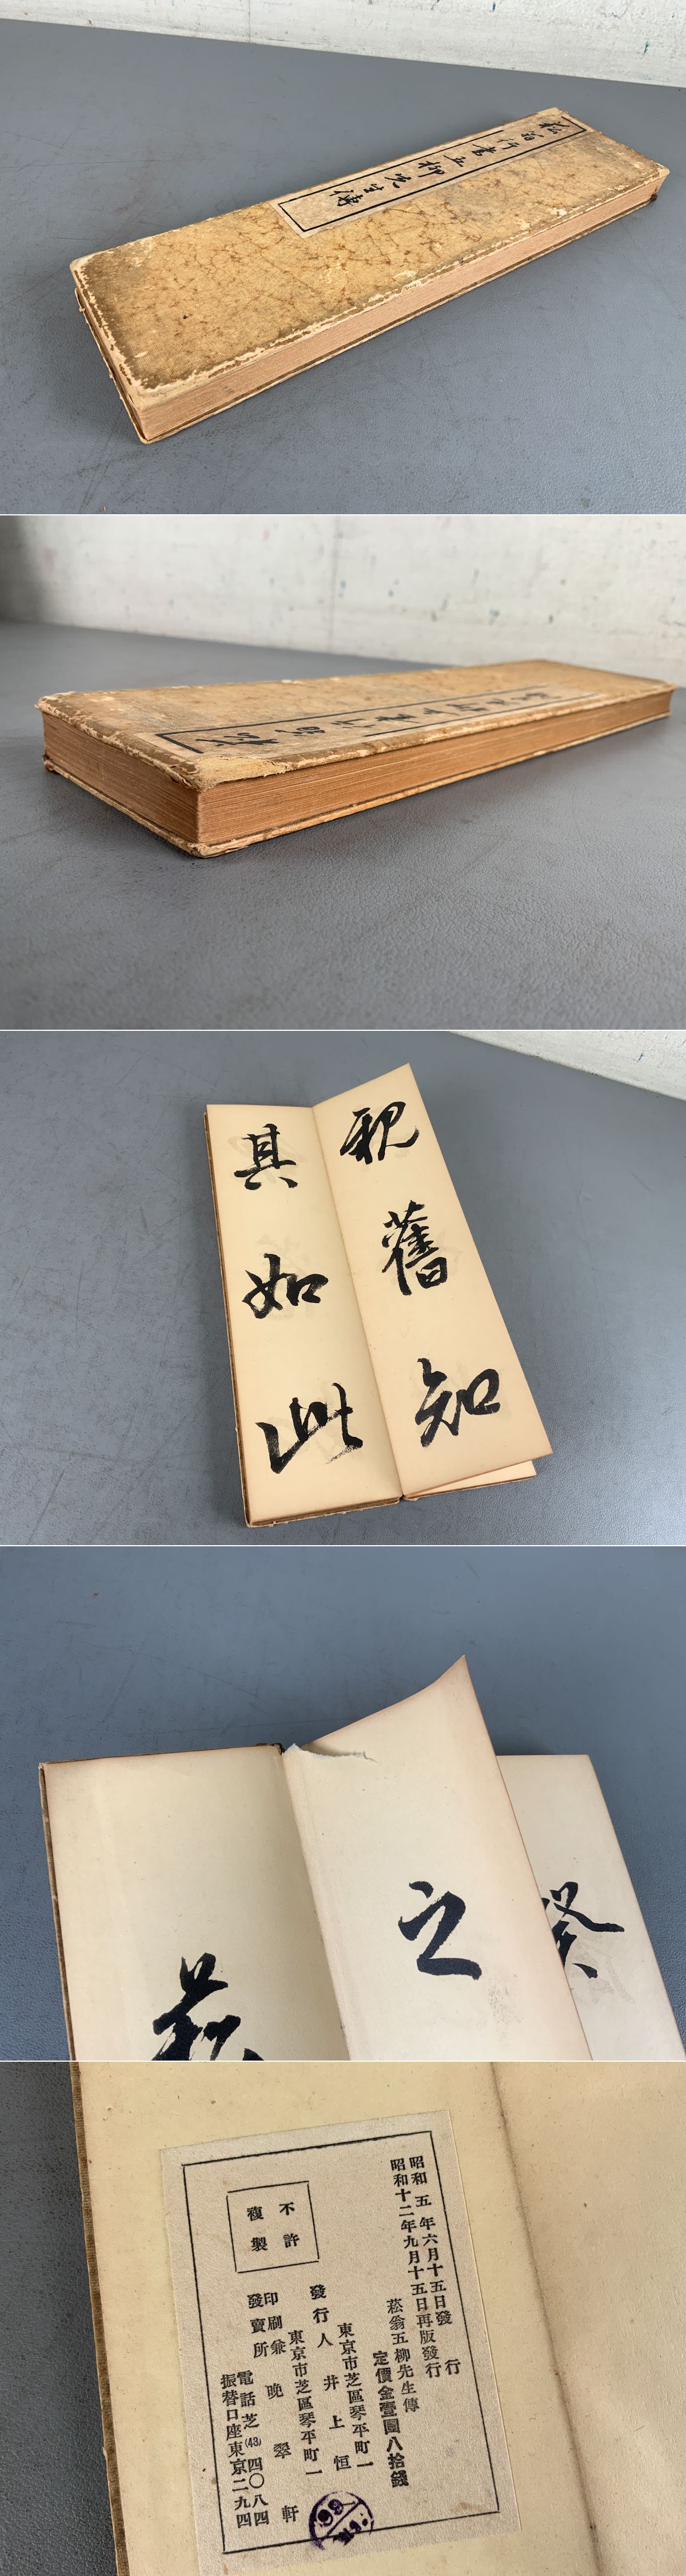 菘翁行書五柳先生傳
親舊知
其如此
之
癸
昭和五年六月十五日發行
昭和十二年九月十五日再版發行
菘翁五柳先生傳
定價金壹圓八拾錢
不許
複製
東京市芝區琴平町一
發行人 井上恒
東京市芝區琴平町一
印刷兼
發賣所 晩翠軒
電話芝(43)四〇八四
振替口座東京二九四